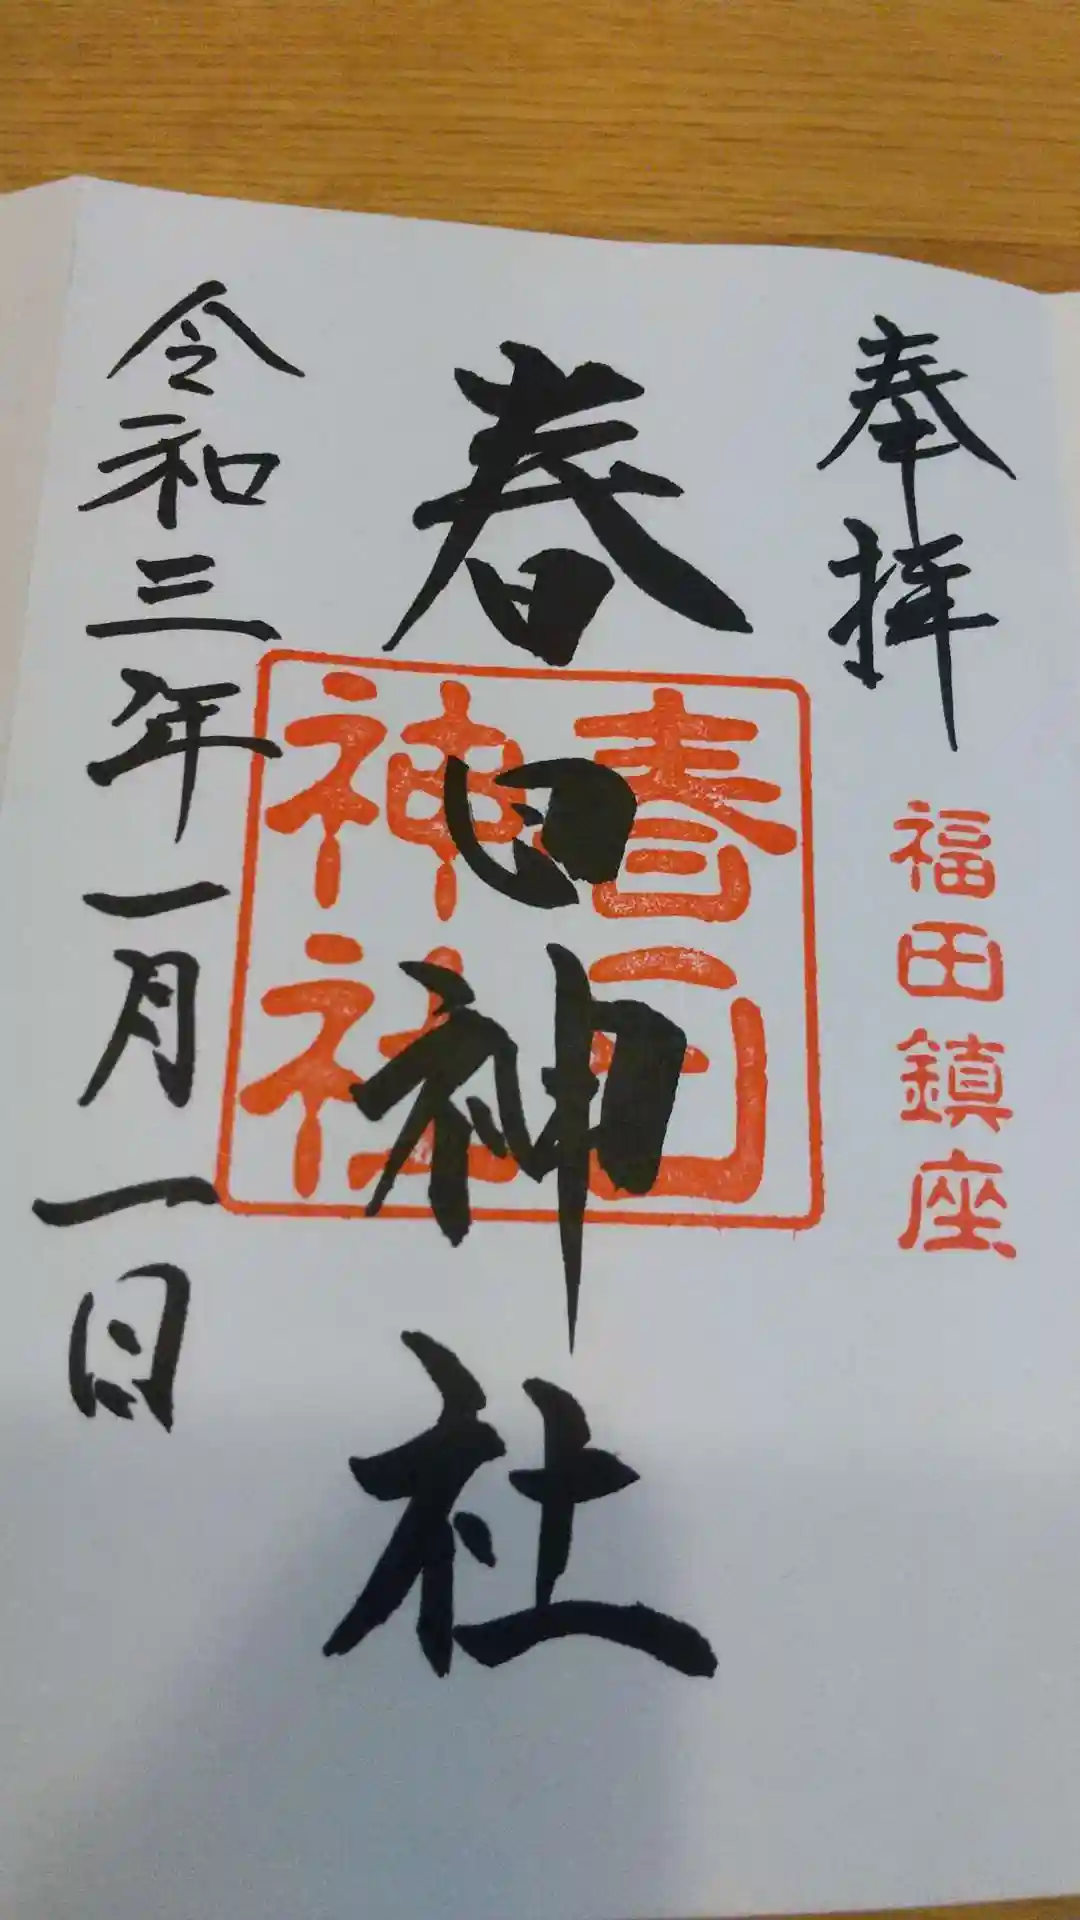 奉拝
福田鎮座
春日神社
春日
神社
令和三年一月一日